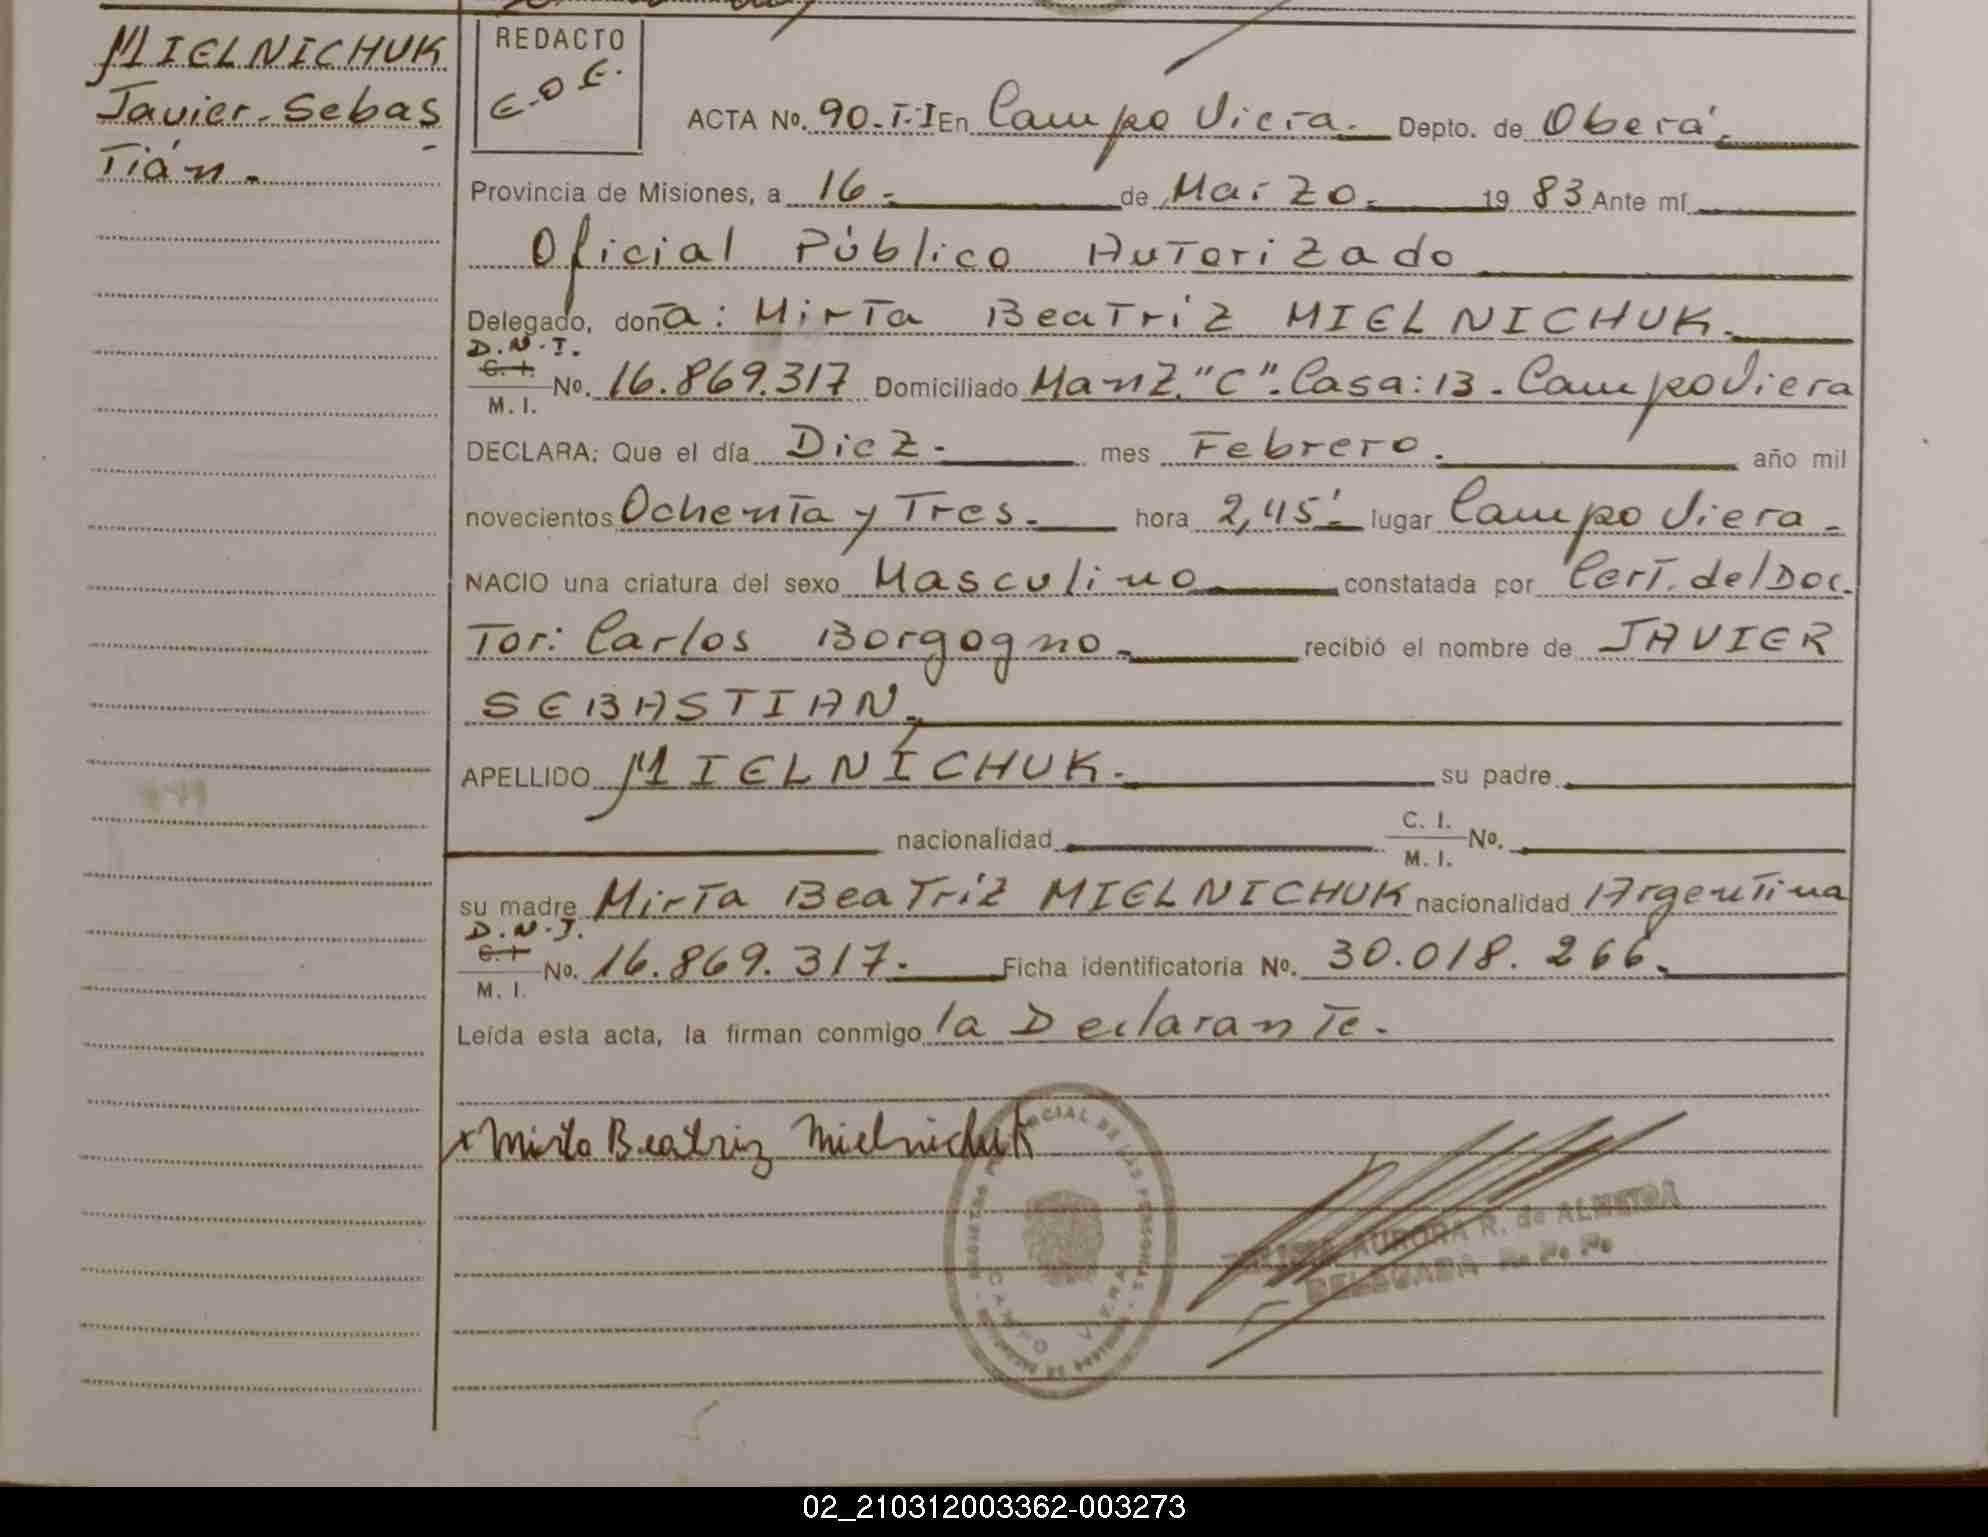 MIELNICHUK
Javier-Sebas
Tián.
REDACTO
E.O.E.
ACTA No. 90-T-I En Campo Viera. Depto. de Oberá.
Provincia de Misiones, a 16. de Marzo. 1983 Ante mí
Oficial Público Autorizado
Delegado, doña: Mirta Beatriz MIELNICHUK.
D.N.I.
C. I.
M. I. No. 16.869.317 Domiciliado Manz. "C". Casa: 13. Campo Viera
DECLARA: Que el día Diez. mes Febrero. año mil
novecientos Ochenta y Tres. hora 2,45'. lugar Campo Viera.
NACIO una criatura del sexo Masculino constatada por Cert. del Doc.
Tor: Carlos Borgogno. recibió el nombre de JAVIER
SEBASTIAN,
APELLIDO MIELNICHUK. su padre
nacionalidad C. I. M. I. No.
su madre Mirta Beatriz MIELNICHUK nacionalidad Argentina
D.N.I.
C. I.
M. I. No. 16.869.317. Ficha identificatoria No. 30.018.266.
Leída esta acta, la firman conmigo la Declarante.
x Mirta Beatriz Mielnichuk
CIAL DE LAS PERSONAS
CAMPO VIERA
AURORA R. de ALMEIDA
DELEGADA R. P. P.
02_210312003362-003273